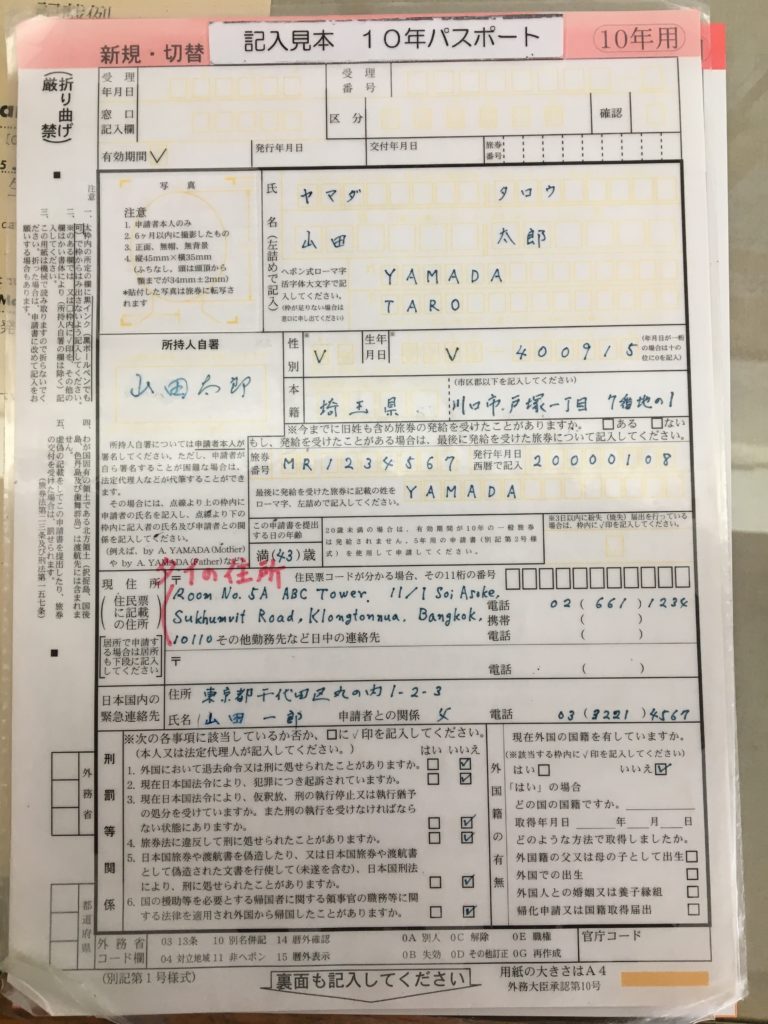 新規・切替
記入見本 10年パスポート
10年用
(折り曲げ厳禁)
受理年月日
受理番号
窓口記入欄
区分
確認
有効期間
発行年月日
交付年月日
旅券番号
写真
注意
1. 申請者本人のみ
2. 6ヶ月以内に撮影したもの
3. 正面、無帽、無背景
4. 縦45mm×横35mm
(ふちなし。頭は頭頂から
顎までが34mm±2mm)
*貼付した写真は旅券に転写さ
れます
氏名(左詰めで記入)
ヤマダ タロウ
山田 太郎
ヘボン式ローマ字
活字体大文字で記
入してください。
(枠が足りない場合は
窓口に申し出てください)
YAMADA
TARO
所持人自署
山田太郎
性別
生年月日
400915
(年月日が一桁
の場合は十の
位に0を記入)
本籍
埼玉県
(市区郡以下を記入してください)
川口市戸塚一丁目 7番地の1
※今までに旧姓も含め旅券の発給を受けたことがありますか。 □ある □ない
もし、発給を受けたことがある場合は、最後に発給を受けた旅券について記入してください。
所持人自署については申請者本人が
署名してください。ただし、申請者が
自ら署名することが困難な場合は、
法定代理人などが代筆することができ
ます。
その場合には、点線より上の枠内に
申請者の氏名を記入し、点線より下の
枠内に記入者の氏名及び申請者との関
係を記入してください。
(例えば、by A. YAMADA(Mother)
や by A. YAMADA(Father)など)
旅券番号
MR1234567
発行年月日
西暦で記入
20000108
最後に発給を受けた旅券に記載の姓を
ローマ字、左詰めで記入してください。
YAMADA
この申請書を提出
する日の年齢
満(43)歳
20歳未満の場合は、有効期間が10年の一般旅券
は発給されません。5年用の申請書(別記第2号様
式)を使用して申請してください。
※3日以内に紛失(焼失)届出を行っている
場合は、枠内に√印を記入してください。
タイの住所
現住所
(住民票に記載の住所)
〒
住民票コードが分かる場合、その11桁の番号
Room No. 5A ABC Tower. 11/1 Soi Asoke,
Sukhumvit Road, Klongtonnua, Bangkok,
10110
電話 02 (661) 1234
携帯 ( )
その他勤務先など日中の連絡先
[居所で申請する場合は居所も下段に記入してください]
〒
電話 ( )
日本国内の
緊急連絡先
住所 東京都千代田区丸の内1-2-3
氏名 山田一郎 申請者との関係 父 電話 03 (3221) 4567
刑罰等関係
※次の各事項に該当しているか否か、□に√印を記入してください。
(本人又は法定代理人が記入してください。)
はい いいえ
1. 外国において退去命令又は刑に処せられたことがありますか。
2. 現在日本国法令により、犯罪につき起訴されていますか。
3. 現在日本国法令により、仮釈放、刑の執行停止又は執行猶予
の処分を受けていますか。また刑の執行を受けなければなら
ない状態にありますか。
4. 旅券法に違反して刑に処せられたことがありますか。
5. 日本国旅券や渡航書を偽造したり、又は日本国旅券や渡航書
として偽造された文書を行使して(未遂を含む)、日本国刑法
により、刑に処せられたことがありますか。
6. 国の援助等を必要とする帰国者に関する領事官の職務等に関
する法律を適用され外国から帰国したことがありますか。
外国籍の有無
現在外国の国籍を有していますか。
(※該当する枠内に√印を記入してください)
はい□ いいえ☑
「はい」の場合
どの国の国籍ですか。
取得年月日 年 月 日
どのような方法で取得しましたか。
外国籍の父又は母の子として出生□
外国での出生□
外国人との婚姻又は養子縁組□
帰化申請又は国籍取得届出□
外務省
都道府県
外務省
コード欄
03 13条 10 別名併記 14 暦外確認 0A 別人 0C 解除 0E 職権
04 対立地域 11 非ヘボン 15 暦外表示 0B 失効 0D その他訂正 0G 再作成
官庁コード
(別記第1号様式)
裏面も記入してください
用紙の大きさはA4
外務大臣承認第10号